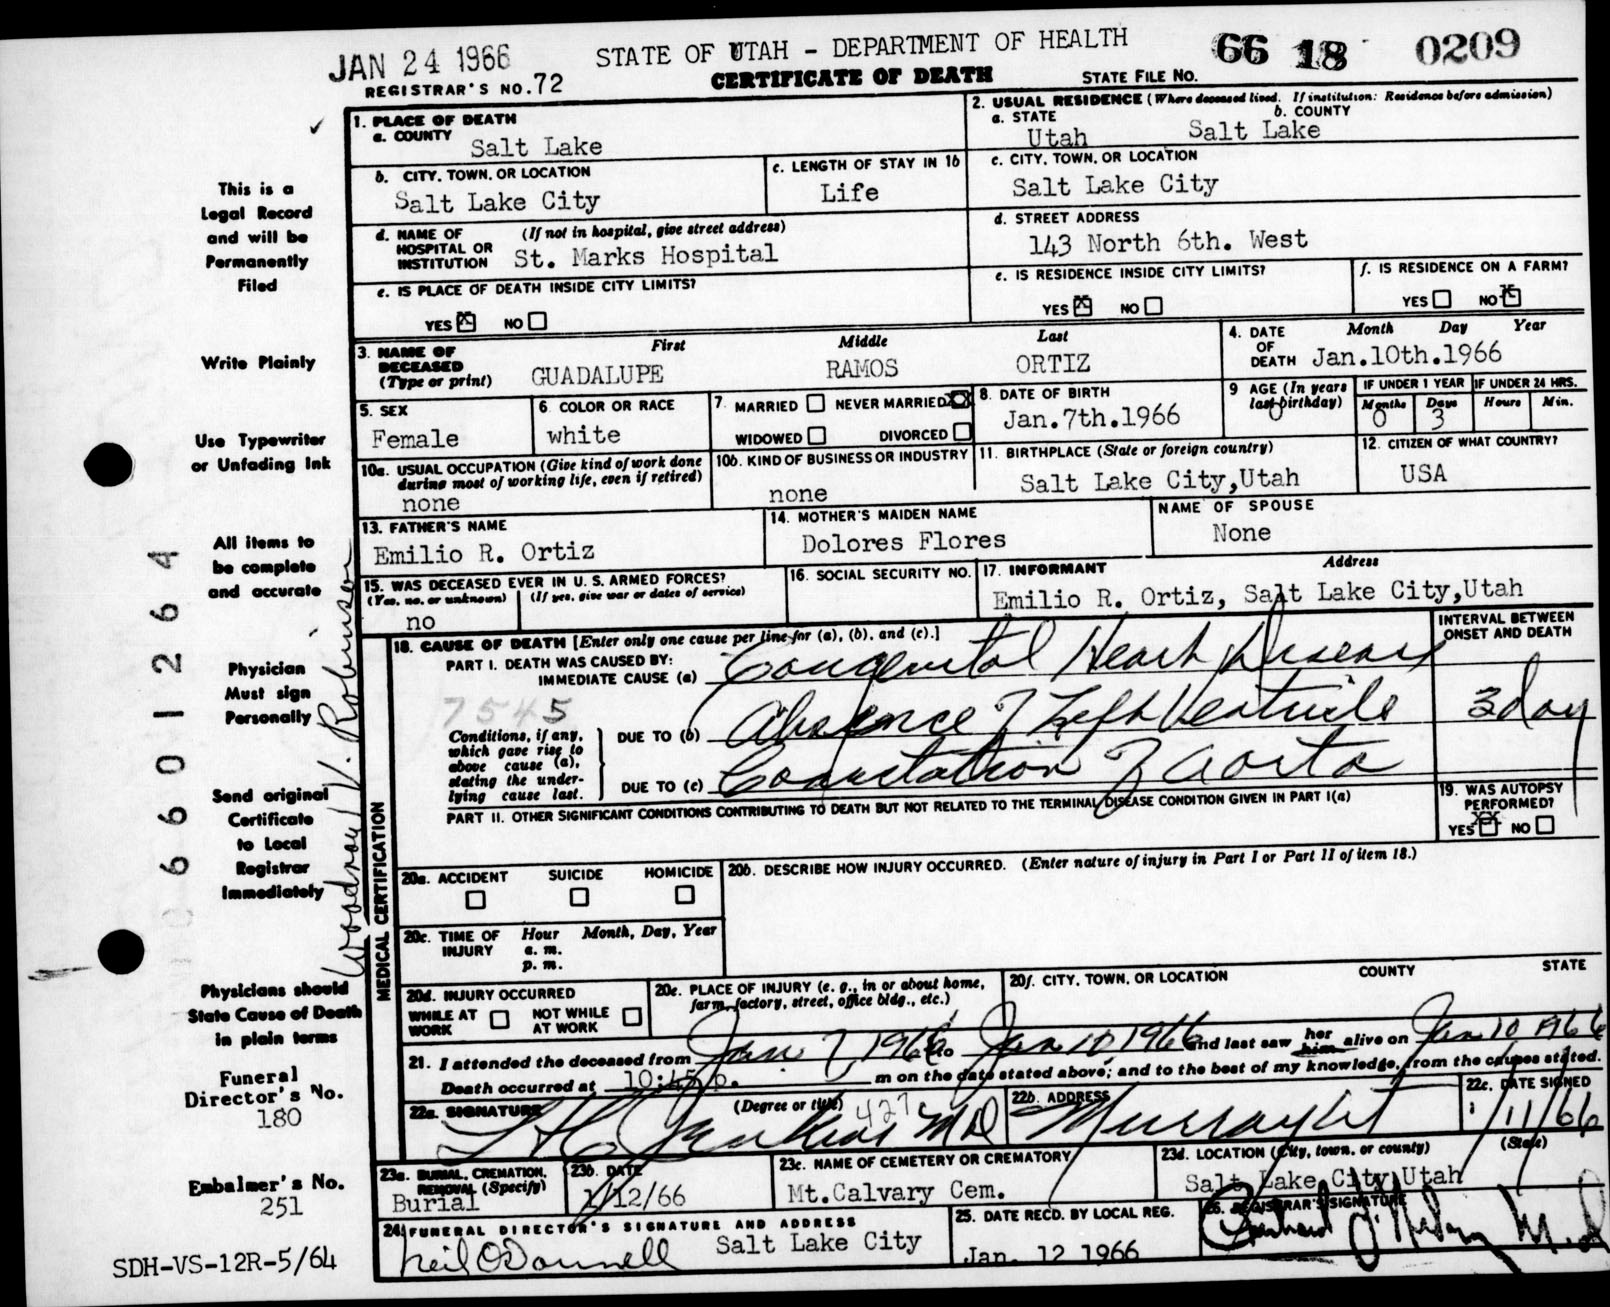 JAN 24 1966
STATE OF UTAH - DEPARTMENT OF HEALTH
66 18 0209
REGISTRAR'S NO. 72
CERTIFICATE OF DEATH
STATE FILE NO.
1. PLACE OF DEATH
a. COUNTY
Salt Lake
2. USUAL RESIDENCE (Where deceased lived. If institution: Residence before admission)
a. STATE
Utah
b. COUNTY
Salt Lake
b. CITY, TOWN, OR LOCATION
Salt Lake City
c. LENGTH OF STAY IN 1b
Life
c. CITY, TOWN, OR LOCATION
Salt Lake City
d. NAME OF HOSPITAL OR INSTITUTION
(If not in hospital, give street address)
St. Marks Hospital
d. STREET ADDRESS
143 North 6th. West
e. IS PLACE OF DEATH INSIDE CITY LIMITS?
YES X NO
e. IS RESIDENCE INSIDE CITY LIMITS?
YES X NO
f. IS RESIDENCE ON A FARM?
YES NO X
3. NAME OF DECEASED
(Type or print)
First Middle Last
GUADALUPE RAMOS ORTIZ
4. DATE OF DEATH
Month Day Year
Jan.10th.1966
5. SEX
Female
6. COLOR OR RACE
white
7. MARRIED NEVER MARRIED X
WIDOWED DIVORCED
8. DATE OF BIRTH
Jan.7th.1966
9 AGE (In years last birthday)
0
IF UNDER 1 YEAR IF UNDER 24 HRS.
Months Days Hours Min.
0 3
10a. USUAL OCCUPATION (Give kind of work done during most of working life, even if retired)
none
10b. KIND OF BUSINESS OR INDUSTRY
none
11. BIRTHPLACE (State or foreign country)
Salt Lake City,Utah
12. CITIZEN OF WHAT COUNTRY?
USA
13. FATHER'S NAME
Emilio R. Ortiz
14. MOTHER'S MAIDEN NAME
Dolores Flores
NAME OF SPOUSE
None
15. WAS DECEASED EVER IN U. S. ARMED FORCES?
(Yes, no, or unknown) (If yes, give war or dates of service)
no
16. SOCIAL SECURITY NO.
17. INFORMANT Address
Emilio R. Ortiz, Salt Lake City,Utah
MEDICAL CERTIFICATION
18. CAUSE OF DEATH [Enter only one cause per line for (a), (b), and (c).]
PART I. DEATH WAS CAUSED BY:
IMMEDIATE CAUSE (a) Congenital Heart Disease
7545
Conditions, if any, which gave rise to above cause (a), stating the underlying cause last.
DUE TO (b) Absence of Left Ventricle
DUE TO (c) Coarctation of Aorta
INTERVAL BETWEEN ONSET AND DEATH
3 day
PART II. OTHER SIGNIFICANT CONDITIONS CONTRIBUTING TO DEATH BUT NOT RELATED TO THE TERMINAL DISEASE CONDITION GIVEN IN PART I(a)
19. WAS AUTOPSY PERFORMED?
YES XX NO
20a. ACCIDENT SUICIDE HOMICIDE
20b. DESCRIBE HOW INJURY OCCURRED. (Enter nature of injury in Part I or Part II of item 18.)
20c. TIME OF INJURY
Hour Month, Day, Year
a. m.
p. m.
20d. INJURY OCCURRED
WHILE AT WORK NOT WHILE AT WORK
20e. PLACE OF INJURY (e. g., in or about home, farm, factory, street, office bldg., etc.)
20f. CITY, TOWN, OR LOCATION COUNTY STATE
21. I attended the deceased from Jan 7 1966 to Jan 10 1966 and last saw her him alive on Jan 10 1966
Death occurred at 10:45 p. m on the date stated above; and to the best of my knowledge, from the causes stated.
22a. SIGNATURE (Degree or title) 427 MD
22b. ADDRESS
Murray Ut
22c. DATE SIGNED
1/11/66
23a. BURIAL, CREMATION, REMOVAL (Specify)
Burial
23b. DATE
1/12/66
23c. NAME OF CEMETERY OR CREMATORY
Mt.Calvary Cem.
23d. LOCATION (City, town, or county) (State)
Salt Lake City,Utah
24. FUNERAL DIRECTOR'S SIGNATURE AND ADDRESS
Neil O'Donnell Salt Lake City
25. DATE RECD. BY LOCAL REG.
Jan. 12 1966
26. REGISTRAR'S SIGNATURE
This is a
Legal Record
and will be
Permanently
Filed
Write Plainly
Use Typewriter
or Unfading Ink
All items to
be complete
and accurate
Physician
Must sign
Personally
Send original
Certificate
to Local
Registrar
Immediately
Physicians should
State Cause of Death
in plain terms
Funeral
Director's No.
180
Embalmer's No.
251
SDH-VS-12R-5/64
6601264
Woodrow W. Robinson